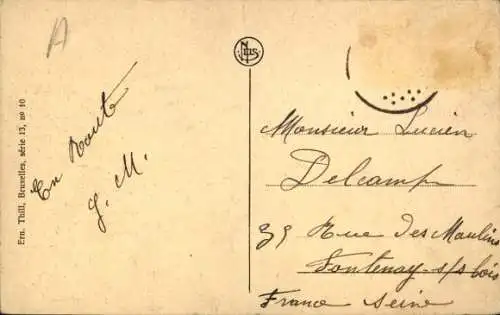 A
NELS
En Route
G. M.
Ern. Thill, Bruxelles, série 13, no 10
Monsieur Lucien
Delcamp
39 Rue des Moulins
Fontenay-s/s bois
France Seine